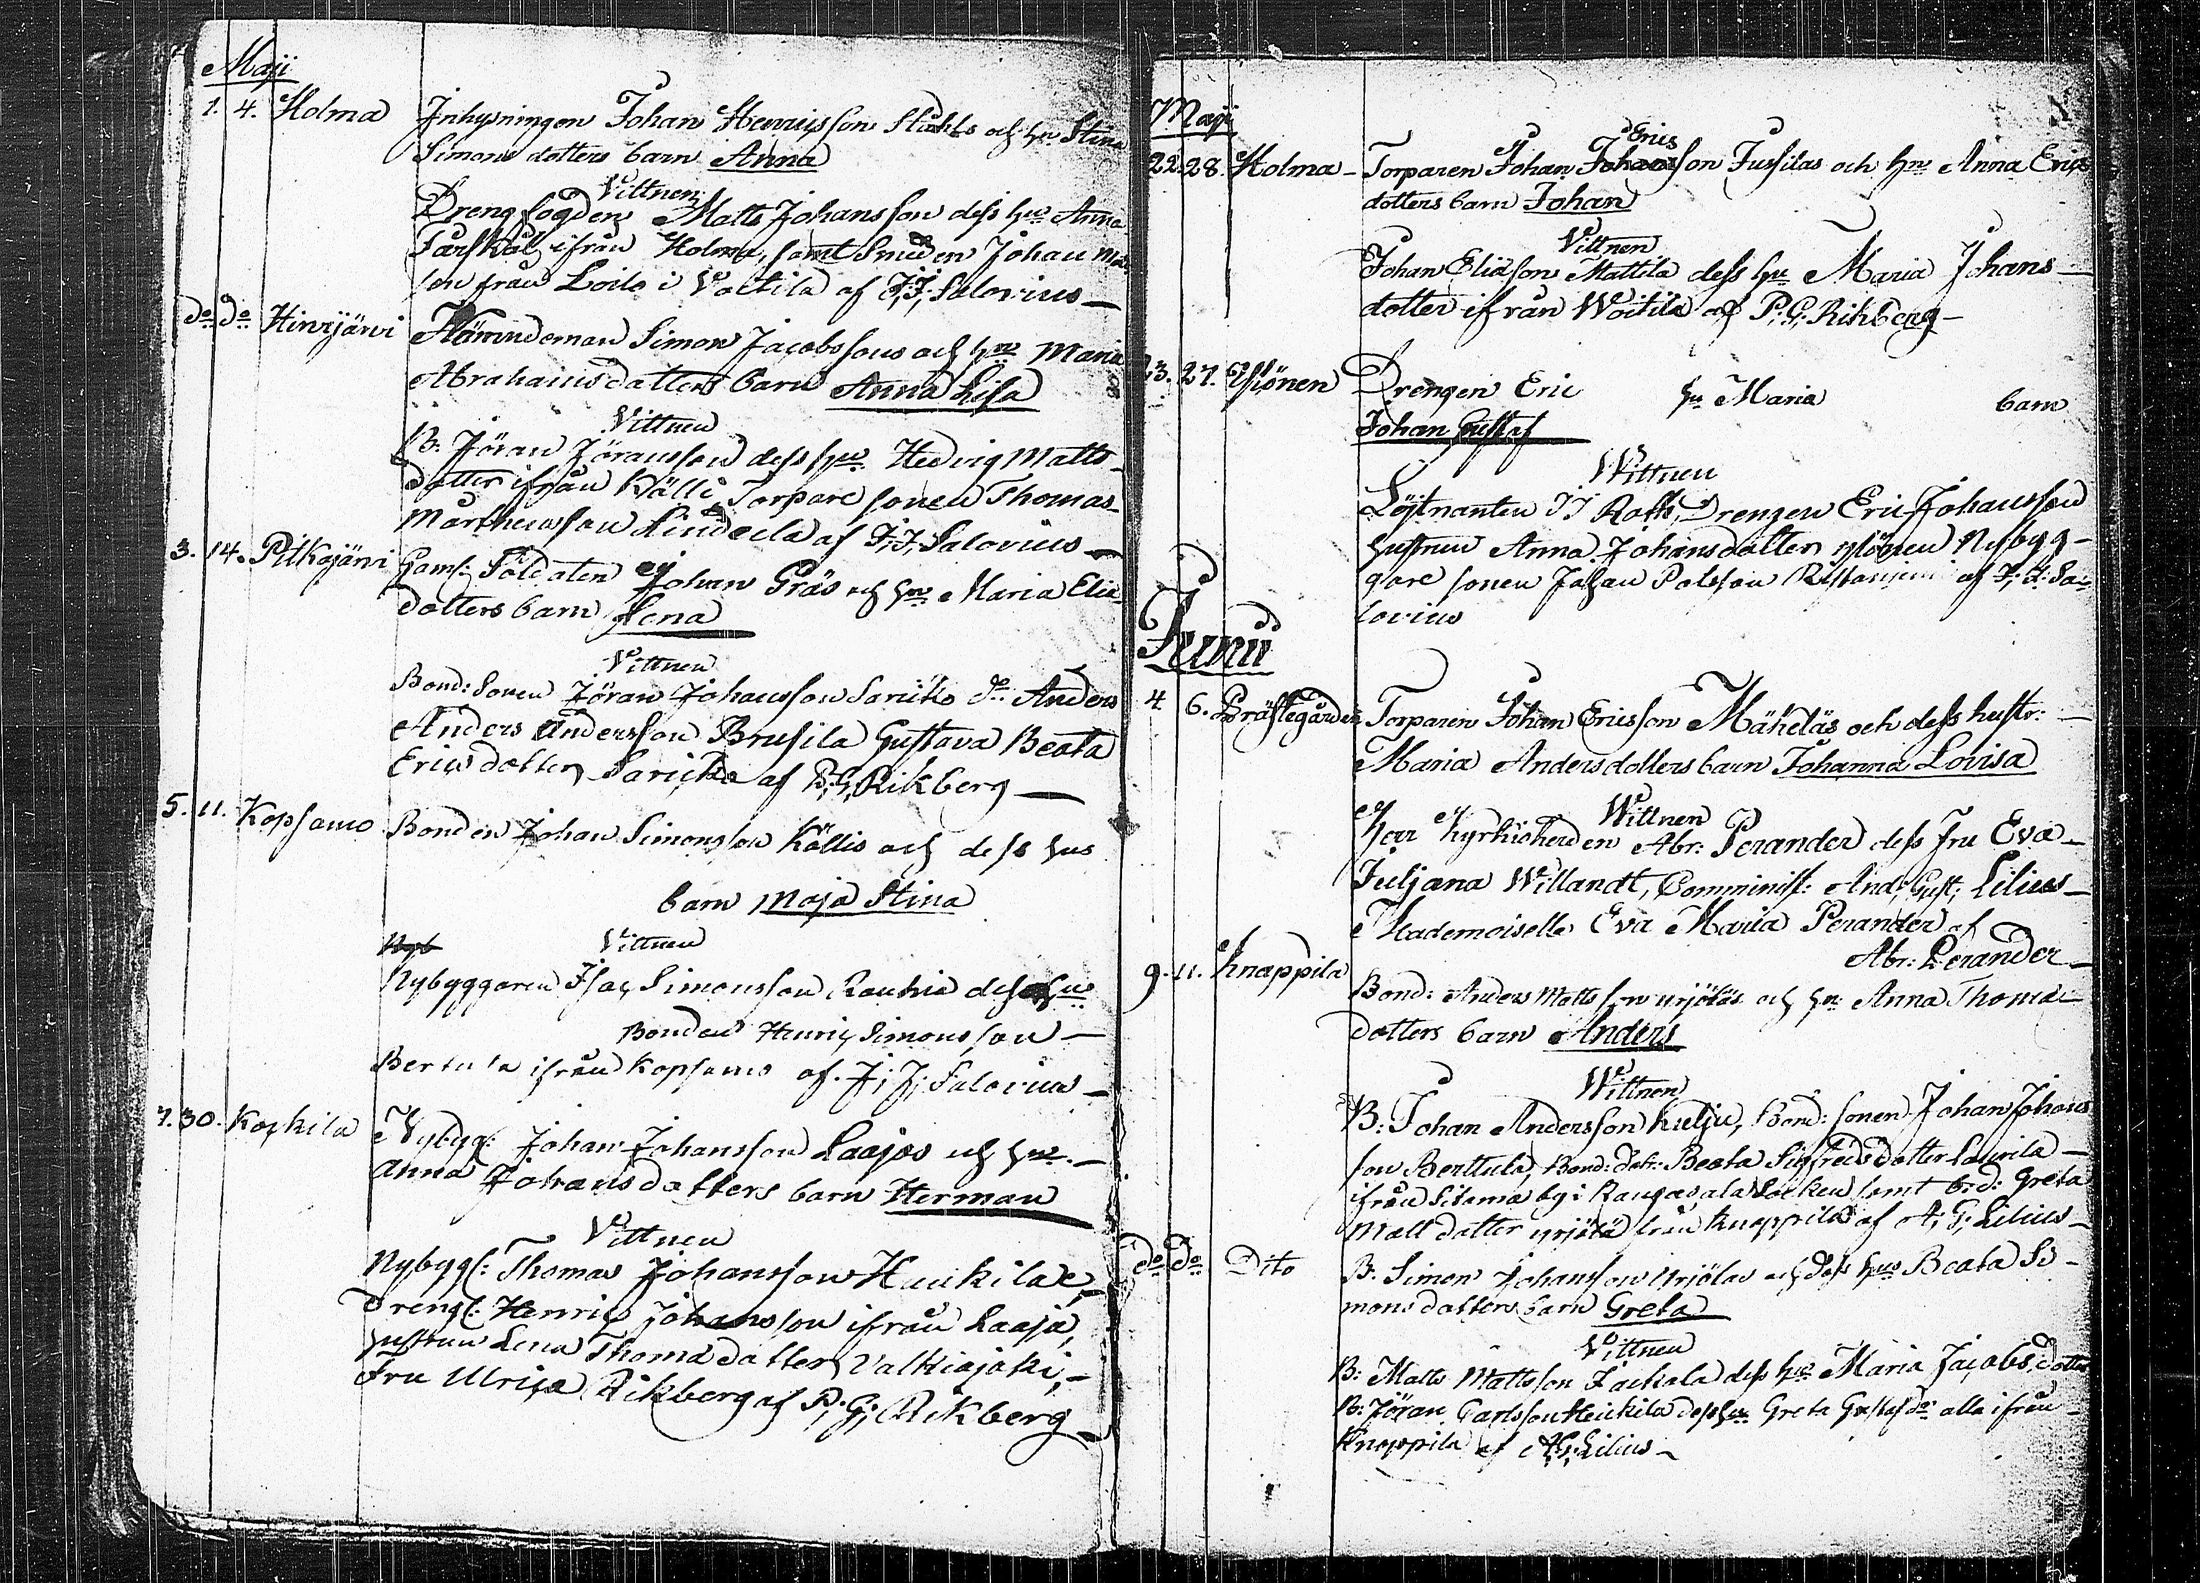 Maji
1. 4. Holma Inhysningen Johan Henricsson Ståhls och hu Stina
Simons dotters barn Anna
Vittnen
Drengfogden Matts Johansson dess hu Anna
ifrån Holma, samt Smeden Johan
son från Loilo i Voitila af J: J: Salovius
do do Hirvijärvi Nämndeman Simon Jacobssons och hu Maria
Abrahams dotters barn Anna Lisa
Vittnen
B: Jöran Jöransson dess hu Hedvig Matts
dotter ifrån Källi, Torpare sonen Thomas
Mårthensson af J: J: Salovius
3. 14. Pitkajärvi Gaml: Soldaten Johan Gräs och hu Maria Elia
dotters barn Lena
Vittnen
Bond: Sonen Jöran Johansson Sariko dr Anders
Anders Andersson Brusila Gustava Beata
Erics dotter Saricka af P: G: Rikberg
5. 11. Kopsamo Bonden Johan Simonsson Källis och dess hus
barn Maja Stina
Nyb Vittnen
Nybyggaren Isac Simonsson Rauhia dess hu
Bonden Henric Simonsson
Bertula ifrån Kopsamo af J: J: Salovius
7. 30. Koskila Nybyg: Johan Johansson Laajas och hu
Anna Johans dotters barn Herman
Vittnen
Nybygg: Thomas Johansson Haukila
Dreng: Henric Johansson ifrån Laaja,
hustrun Lena Thomæ dotter Valkiajoki,
Fru Ulrica Rikberg af P: G: Rikberg
Maji
22. 28. Holma Torparen Johan Erics Johansson Jussilas och hu Anna Erics
dotters barn Johan
Vittnen
Johan Eliasson Mattila dess hu Maria Johans
dotter ifrån Woitila af P: G: Rikberg
23. 27. Ylönen Drengen Eric hu Maria barn
Johan Gustaf
Wittnen
Löjtnanten J J Roth, Drengen Eric Johansson
hustrun Anna Johansdotter Ylönen Nybyg-
gare sonen Johan Polsson af J: J: Sa-
lovius
Junii
4 6. Prästegården Torparen Johan Ericsson Mäkeläs och dess hustr:
Maria Anders dotters barn Johanna Lovisa
Wittnen
Herr Kyrkioherden Abr: Perander dess Fru Eva
Juljana Willandt, Comminist: And: Gust: Lilius
Mademoiselle Eva Maria Perander af
Abr: Perander
9. 11. Knappila Bond: Anders Mattsson Yrjöläs och hu Anna Thomæ
dotters barn Anders
Wittnen
B: Johan Andersson Kulju, Bond: sonen Johan Johans
son Berttula, Bond: dotr: Beata Sigfreds dotter Laurila
ifrån Sitoma by i Kangasala Socken samt bd: Greta
Matt dotter Yrjölä från Knappila af A: G: Lilius
do do Dito B. Simon Johansson Yrjölas och dess hus Beata Si-
mons dotters barn Greta
Vittnen
B: Matts Mattsson dess hu Maria Jacobs dotter
B: Jöran Carlsson Heickila dess hu Greta Gustafsdr alla ifrån
Knappila af A: G: Lilius